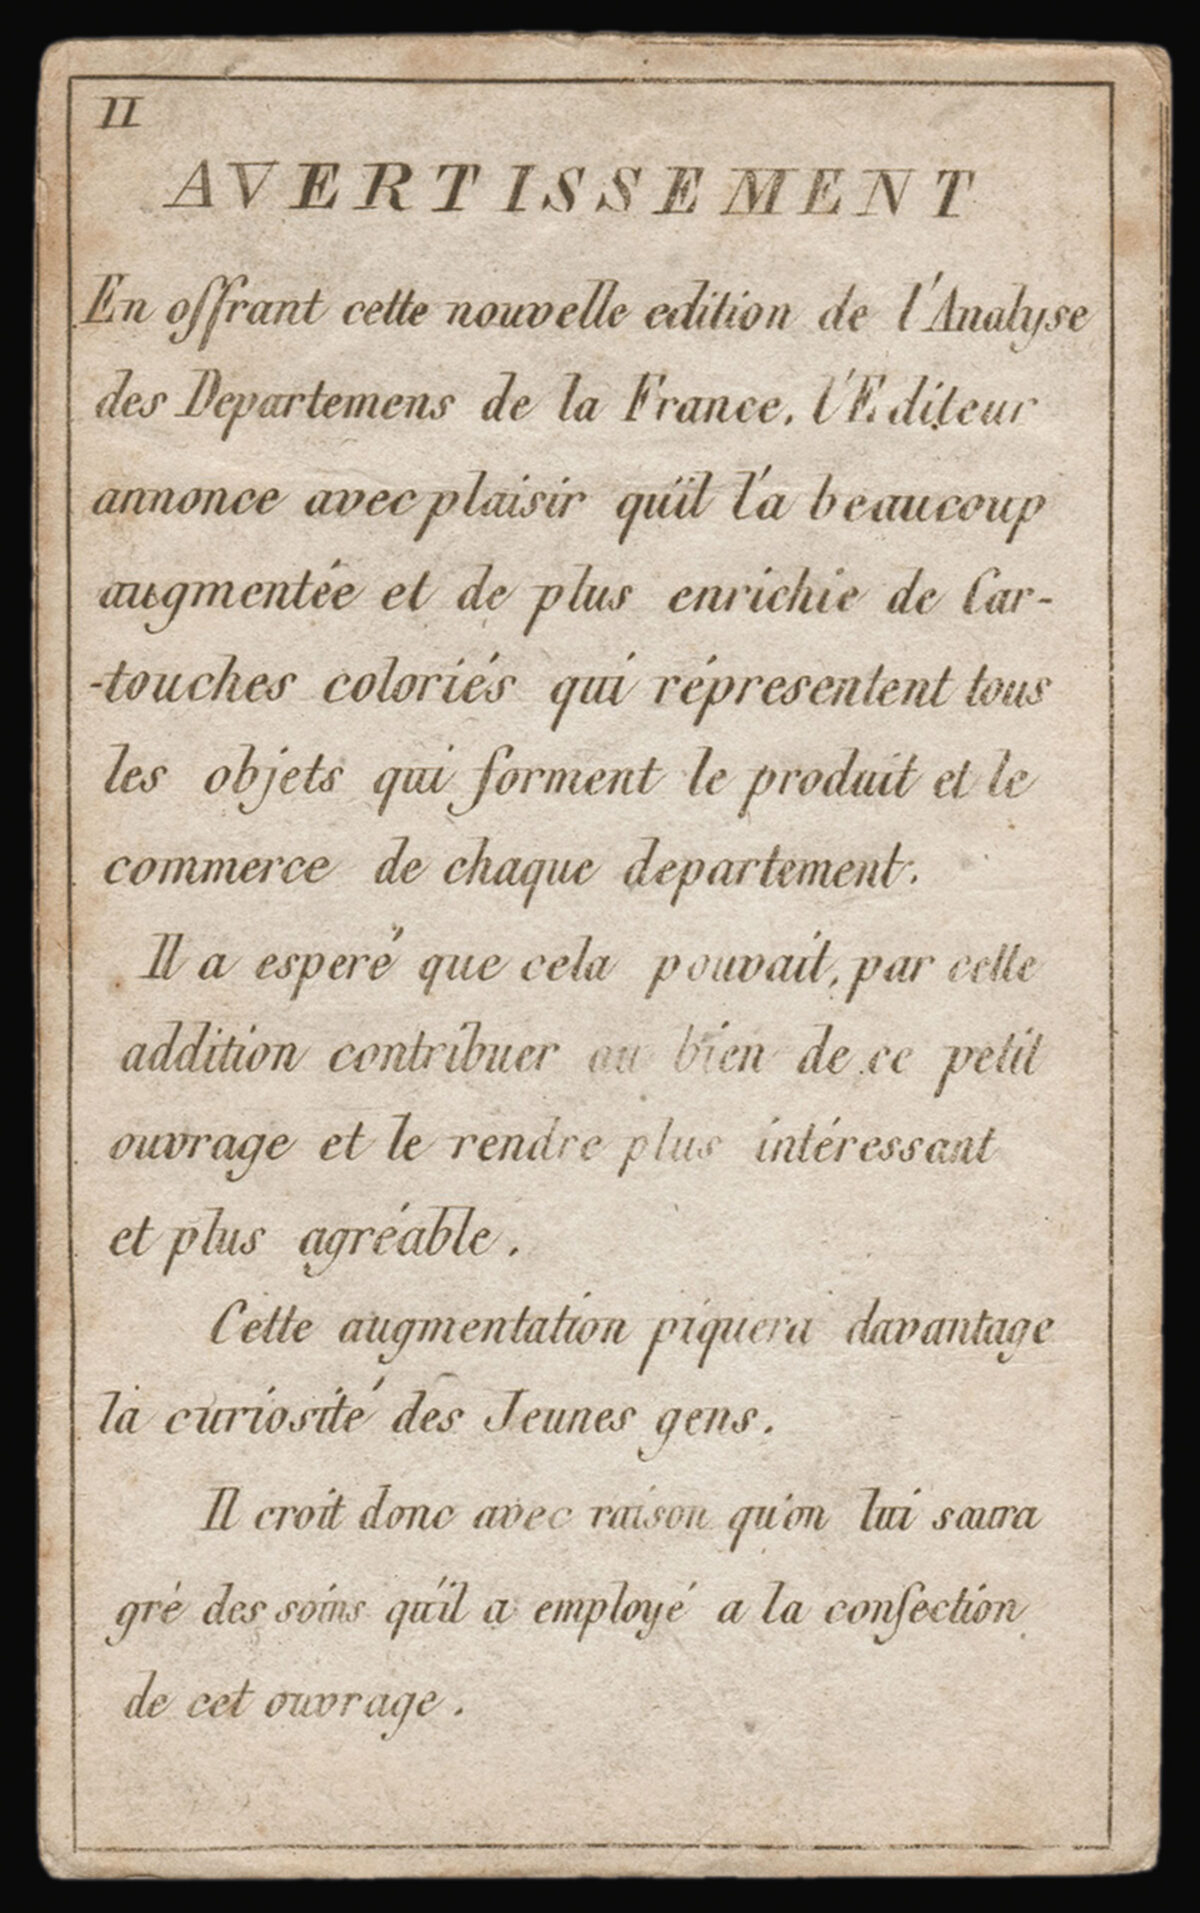 II
AVERTISSEMENT
En offrant cette nouvelle edition de l'Analyse
des Departemens de la France, l'Editeur
annonce avec plaisir qu'il l'a beaucoup
augmentée et de plus enrichie de Car-
-touches coloriés qui répresentent tous
les objets qui forment le produit et le
commerce de chaque departement.
Il a esperé que cela pouvait, par cette
addition contribuer au bien de ce petit
ouvrage et le rendre plus intéressant
et plus agréable.
Cette augmentation piquera davantage
la curiosité des Jeunes gens.
Il croit donc avec raison qu'on lui saura
gré des soins qu'il a employé a la confection
de cet ouvrage.